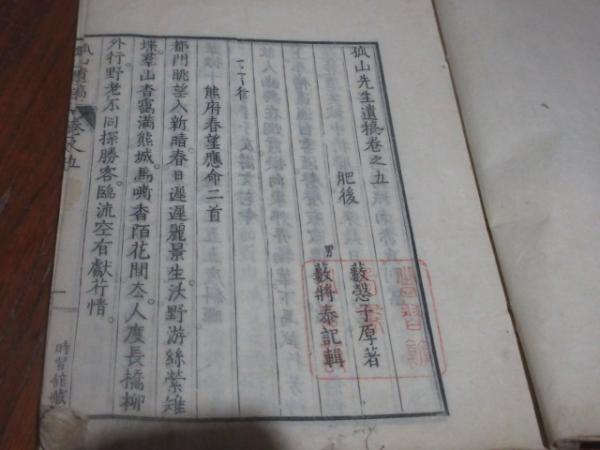 孤山先生遺稿卷之五
肥後
藪愨子厚著
男
藪將泰記輯
七言律
熊府春望應命二首
都門眺望入新晴。春日遲遲麗景生。沃野游絲縈雉
堞。羣山杳靄滿熊城。馬嘶香陌花間去。人度長橋柳
外行。野老不同探勝客。臨流空有獻芹情。
孤山遺稿
卷之五
一
時習館藏